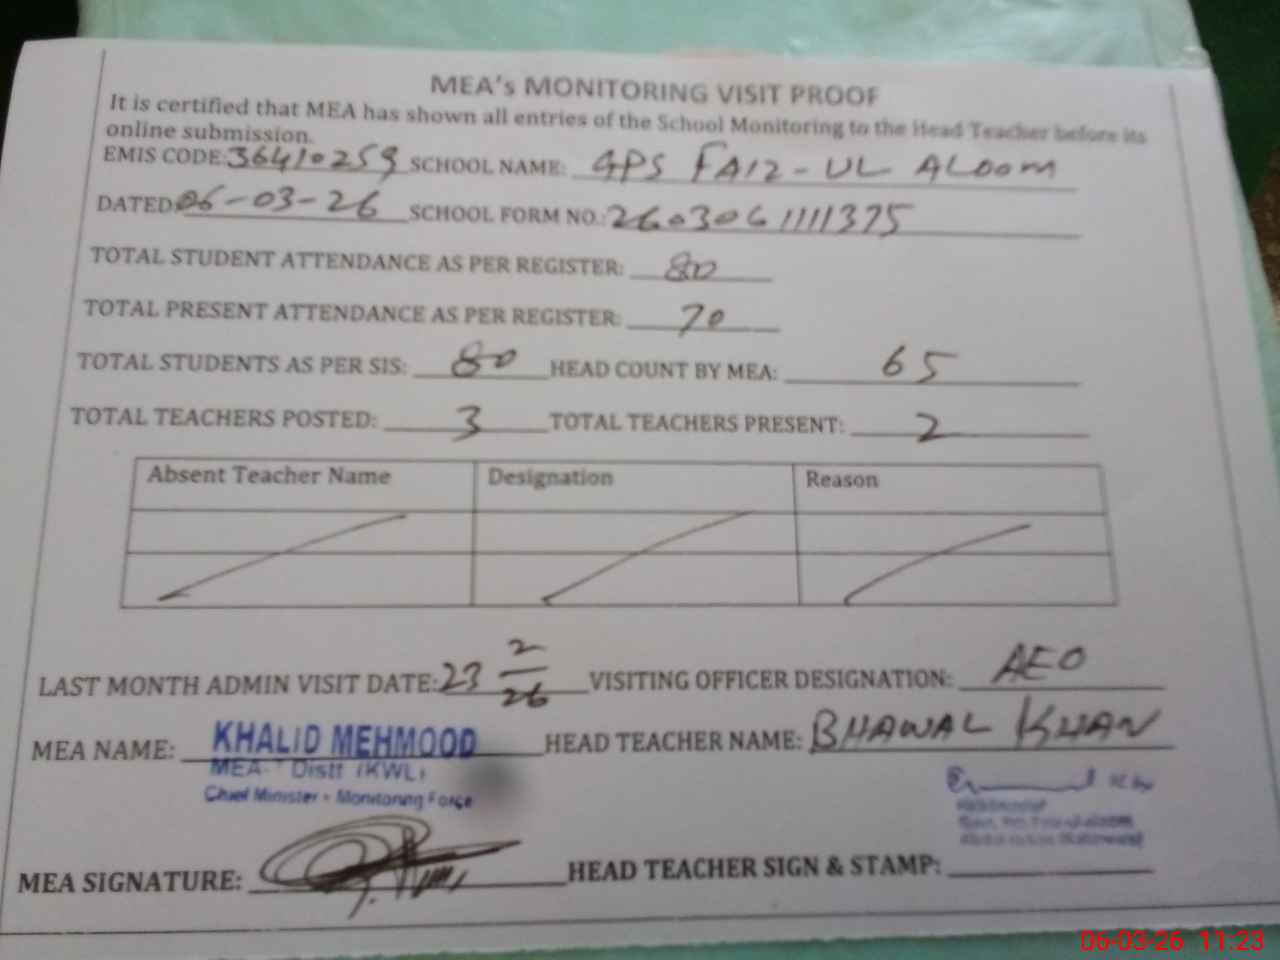 MEA's MONITORING VISIT PROOF
It is certified that MEA has shown all entries of the School Monitoring to the Head Teacher before its
online submission.
EMIS CODE: 36410259 SCHOOL NAME: GPS FAIZ-UL ALOOM
DATED: 06-03-26 SCHOOL FORM NO.: 2603061111375
TOTAL STUDENT ATTENDANCE AS PER REGISTER: 80
TOTAL PRESENT ATTENDANCE AS PER REGISTER: 70
TOTAL STUDENTS AS PER SIS: 80 HEAD COUNT BY MEA: 65
TOTAL TEACHERS POSTED: 3 TOTAL TEACHERS PRESENT: 2
Absent Teacher Name Designation Reason
LAST MONTH ADMIN VISIT DATE: 23 2/26 VISITING OFFICER DESIGNATION: AEO
MEA NAME: KHALID MEHMOOD HEAD TEACHER NAME: BHAWAL KHAN
MEA Distt (KWL)
Chief Minister - Monitoring Force
MEA SIGNATURE: HEAD TEACHER SIGN & STAMP:
06-03-26 11:23